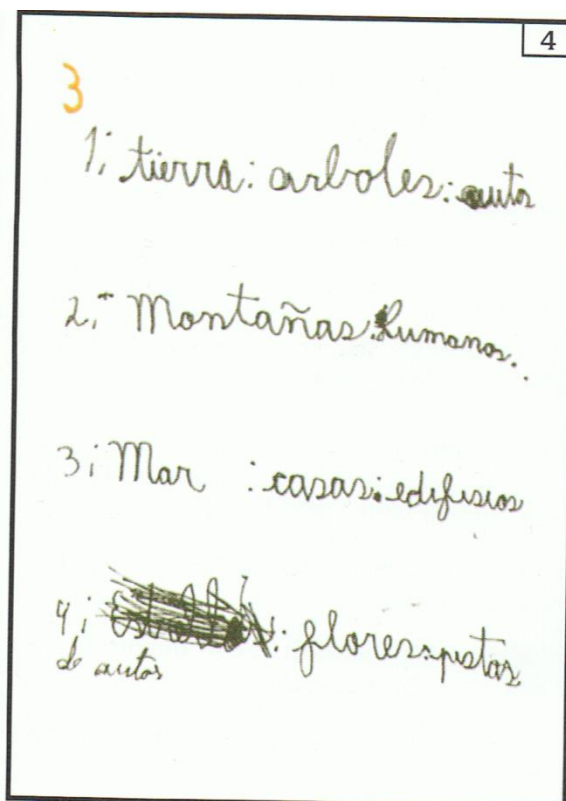 4
3
1; tierra: arboles: autos
2; Montañas: humanos.
3; Mar : casas: edifisios
4; : flores: pistas
de autos